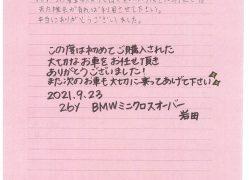 本当にありがとうございました。
この度は初めてご購入された
大切なお車をお任せ頂き
ありがとうございました!
また次のお車も大切に乗ってあげて下さい
2021.9.23
26Y BMWミニクロスオーバー
岩田